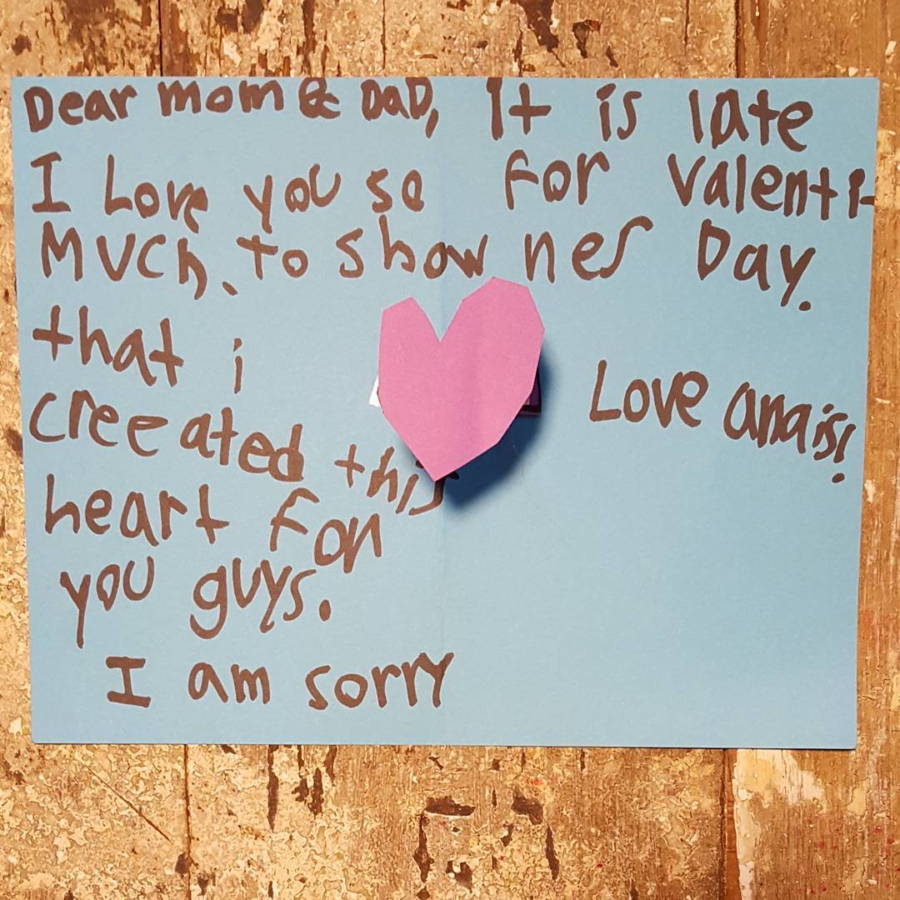 Dear mom & DaD,
I Love you so
MUCh. to show
that i
creeated this
heart for
you guys.
I am sorry
It is late
for Valenti-
nes Day.
Love anais!